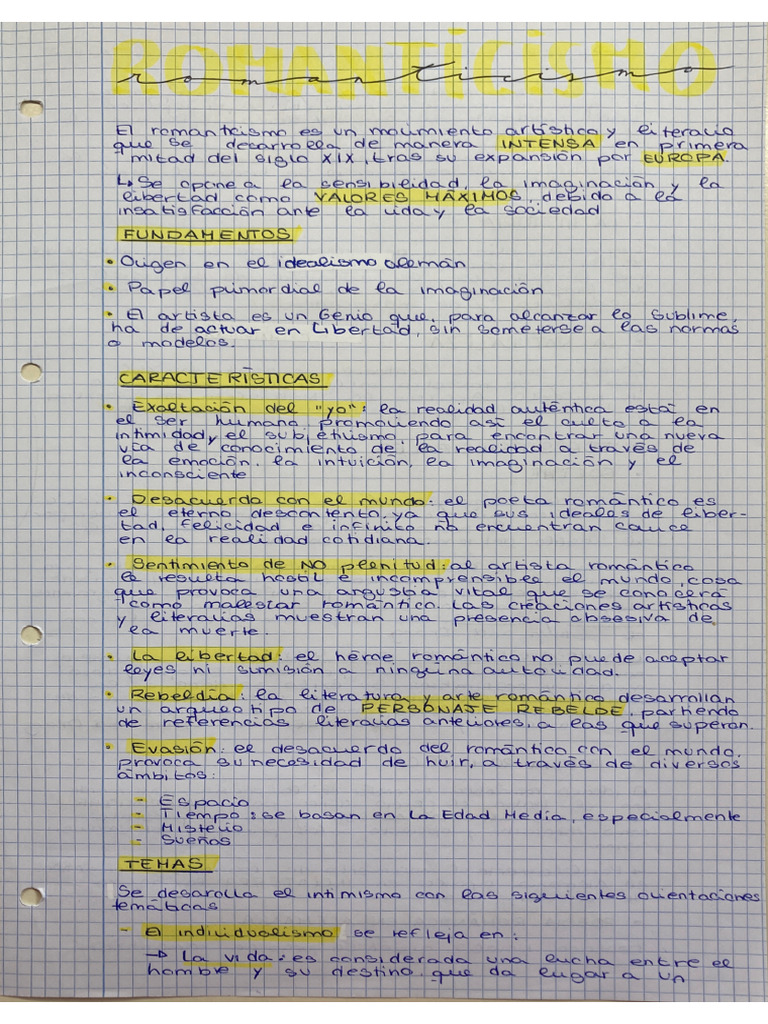 ROMANTICISMO
romanticismo
El romanticismo es un movimiento artístico y literario
que se desarrolla de manera INTENSA en primera
mitad del siglo XIX, tras su expansión por EUROPA.
↳ Se opone a la sensibilidad, la imaginación y la
libertad como VALORES MÁXIMOS, debido a la
insatisfacción ante la vida y la sociedad
FUNDAMENTOS
• Origen en el idealismo alemán
• Papel primordial de la imaginación
• El artista es un Genio que, para alcanzar lo Sublime,
ha de actuar en Libertad, sin someterse a las normas
o modelos.
CARACTERÍSTICAS
• Exaltación del "yo": la realidad auténtica está en
el ser humano, promoviendo así el culto a la
intimidad y el subjetivismo, para encontrar una nueva
vía de conocimiento de la realidad a través de
la emoción, la intuición, la imaginación y el
inconsciente
• Desacuerdo con el mundo: el poeta romántico es
el eterno descontento, ya que sus ideales de liber-
tad, felicidad e infinito no encuentran cauce
en la realidad cotidiana.
• Sentimiento de NO plenitud: al artista romántico
le resulta hostil e incomprensible el mundo, cosa
que provoca una angustia vital que se conocerá
como malestar romántico. Las creaciones artísticas
y literarias muestran una presencia obsesiva de
la muerte.
• La libertad: el héroe romántico no puede aceptar
leyes ni sumisión a ninguna autoridad.
• Rebeldía: la literatura y arte romántica desarrollan
un arqueotipo de PERSONAJE REBELDE, partiendo
de referencias literarias anteriores, a las que superan.
• Evasión: el desacuerdo del romántico con el mundo,
provoca su necesidad de huir, a través de diversos
ámbitos:
- Espacio
- Tiempo: se basan en la Edad Media, especialmente
- Misterio
- Sueños
TEMAS
Se desarolla el intimismo con las siguientes orientaciones
temáticas
- El individualismo se refleja en:
→ La vida: es considerada una lucha entre el
hombre y su destino, que da lugar a un